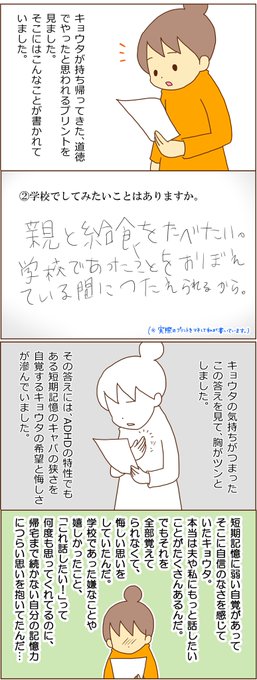 キョウタが持ち帰ってきた、道徳
でやったと思われるプリントを
見ました。
そこにはこんなことが書かれて
いました。
②学校でしてみたいことはありますか。
親と給食をたべたい。
学校であったことをおぼえ
ている間につたえられるから。
(※実際のプリントをマネして私が書いています。)
キョウタの気持ちがつまった
この答えを見て、胸がツンと
しました。
その答えには、ADHDの特性でも
ある短期記憶のキャパの狭さを
自覚するキョウタの希望と悔しさ
が滲んでいました。
短期記憶に弱い自覚があって
そこに自信のなさを感じて
いたキョウタ。
本当は夫や私にもっと話したい
ことがたくさんあるんだ。
でもそれを
全部覚えて
られなくて、
悔しい思いを
していたんだ。
学校であった嫌なことや
嬉しかったこと、
「これ話したい！」って
何度も思ってくれてるのに、
帰宅まで続かない自分の記憶力
につらい思いを抱いてたんだ…